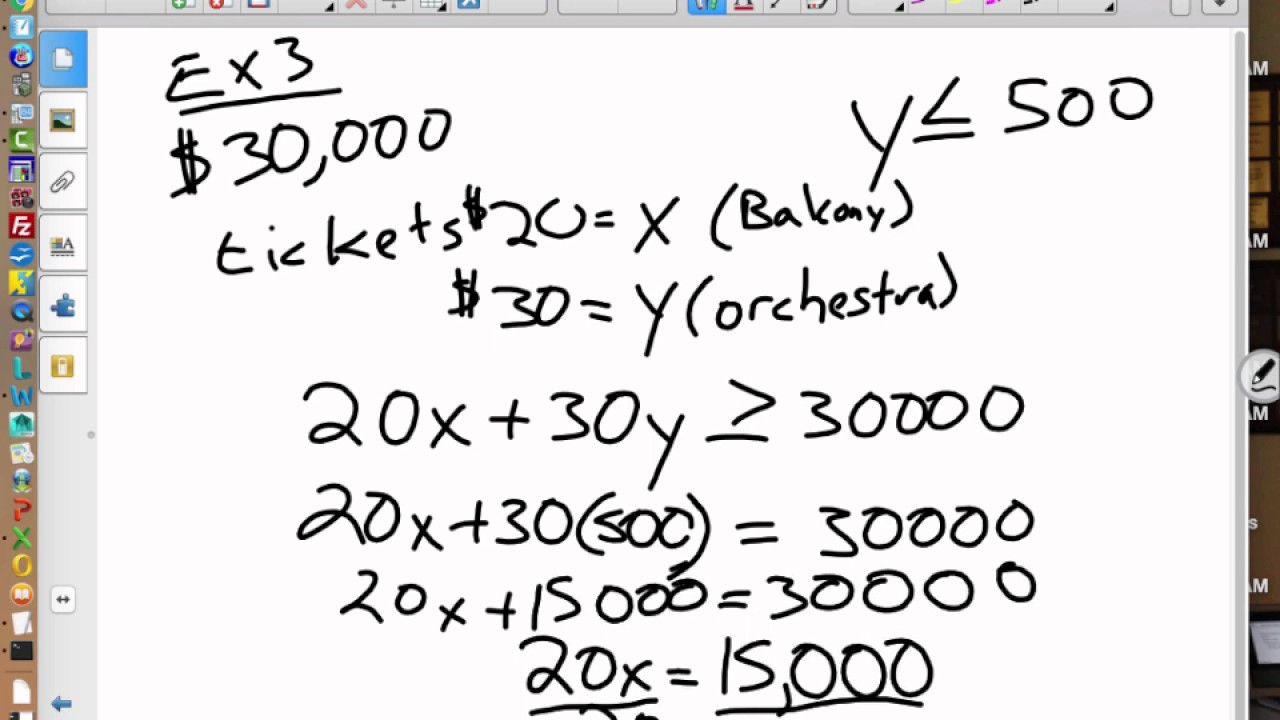 Ex 3
$30,000
y ≤ 500
tickets $20 = x (Balkony)
$30 = y (orchestra)
20x + 30y ≥ 30000
20x + 30(500) = 30000
20x + 15000 = 30000
20x = 15,000
AM
AM
AM
s
AM